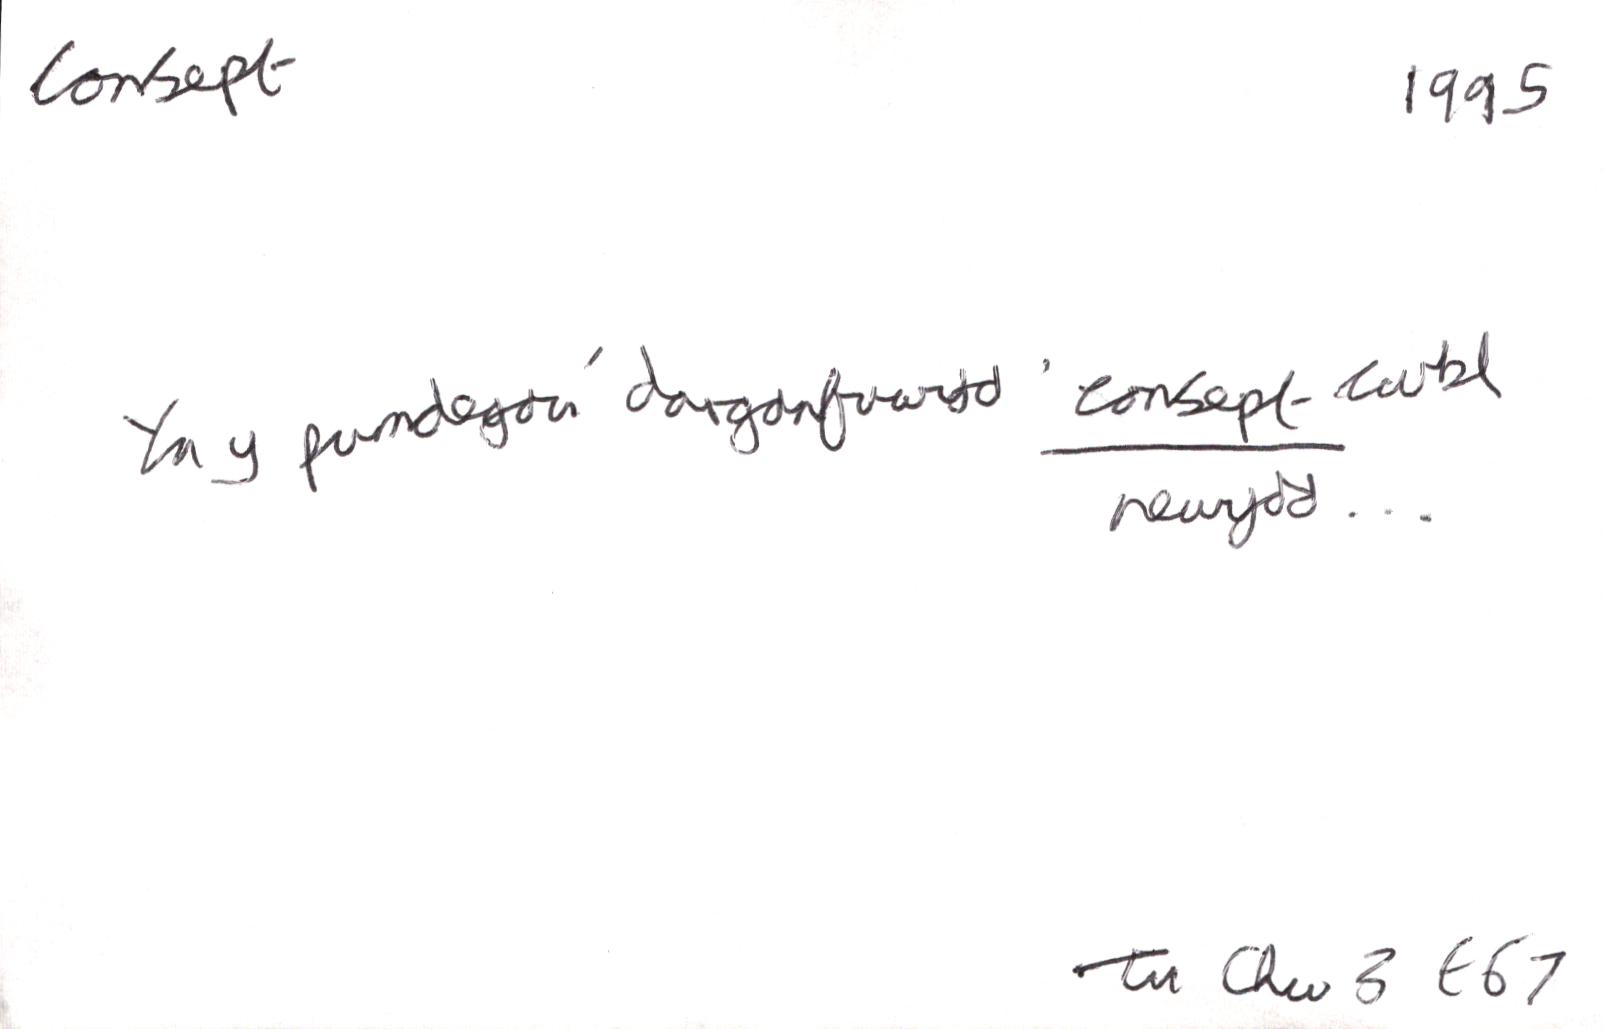 Consept 1995
Yn y pumdegau' darganfuwyd 'consept cwbl
newydd...
Tu Chw 3 E67